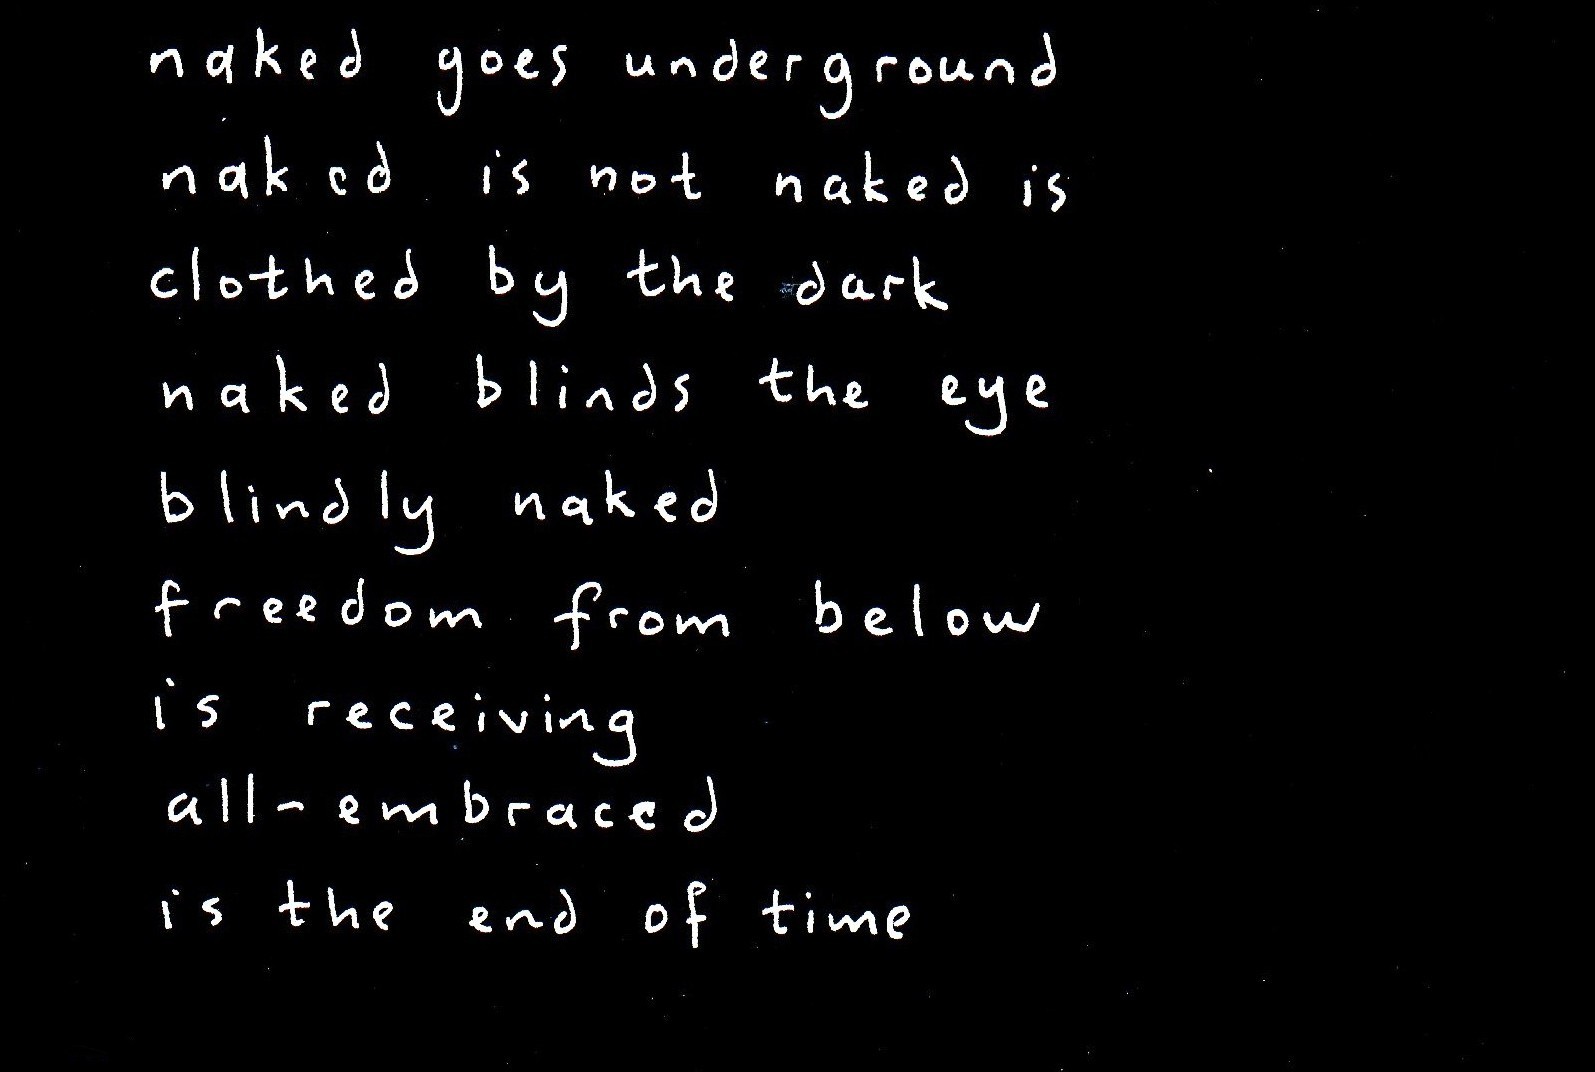 naked goes underground
naked is not naked is
clothed by the dark
naked blinds the eye
blindly naked
freedom from below
is receiving
all-embraced
is the end of time